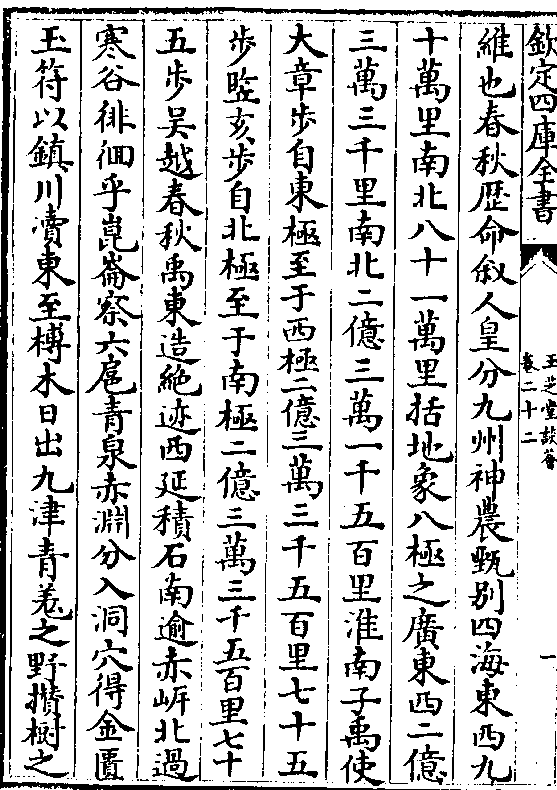 欽定四庫全書
玉芝堂談薈
卷二十二
一
維也春秋歷命叙人皇分九州神農甄别四海東西九
十萬里南北八十一萬里括地象八極之廣東西二億
三萬三千里南北二億三萬一千五百里淮南子禹使
大章歩自東極至于西極二億三萬三千五百里七十五
歩豎亥歩自北極至于南極二億三萬三千五百里七十
五歩吴越春秋禹東造絶迹西延積石南逾赤岍北過
寒谷徘徊乎崑崙察六扈青泉赤淵分入洞穴得金匱
玉符以鎮川瀆東至榑木日出九津青羌之野攢樹之